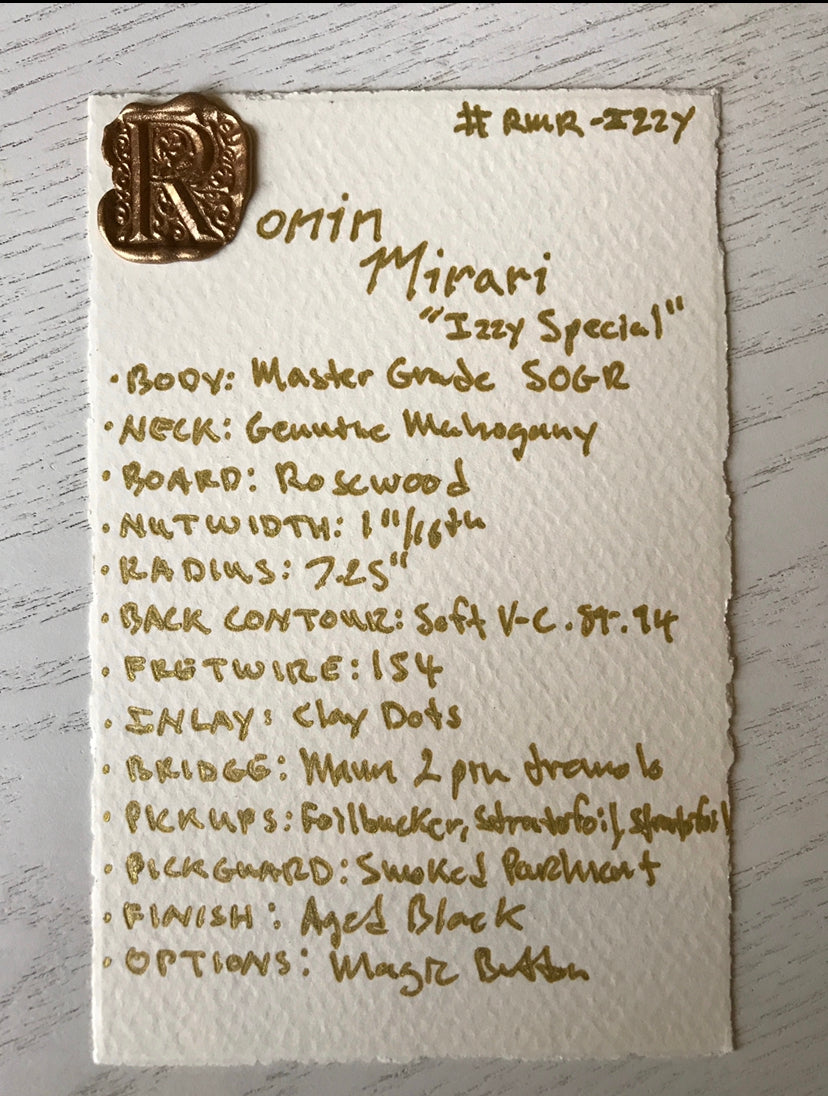 # RMR-IZZY
Ronin
Mirari
"Izzy Special"
· BODY: Master Grade SOGR
· NECK: Genuine Mahogany
· BOARD: Rosewood
· NUTWIDTH: 1"/16th
· RADIUS: 7.25"
· BACK CONTOUR: Soft V-C .84-.94
· FRETWIRE: 154
· INLAY: Clay Dots
· BRIDGE: Mann 2 pin tremolo
· PICKUPS: Foilbucker, Stratofoil, Stratofoil
· PICKGUARD: Smoked Parchment
· FINISH: Aged Black
· OPTIONS: Magic Button